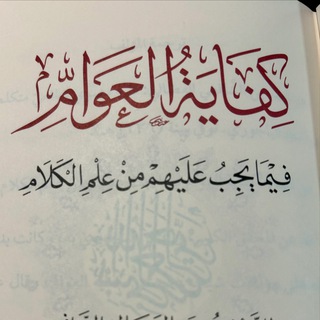 كِفَايَةُ الْعَوَامِّ
فِيمَا يَجِبُ عَلَيْهِمْ مِنْ عِلْمِ الْكَلَامِ